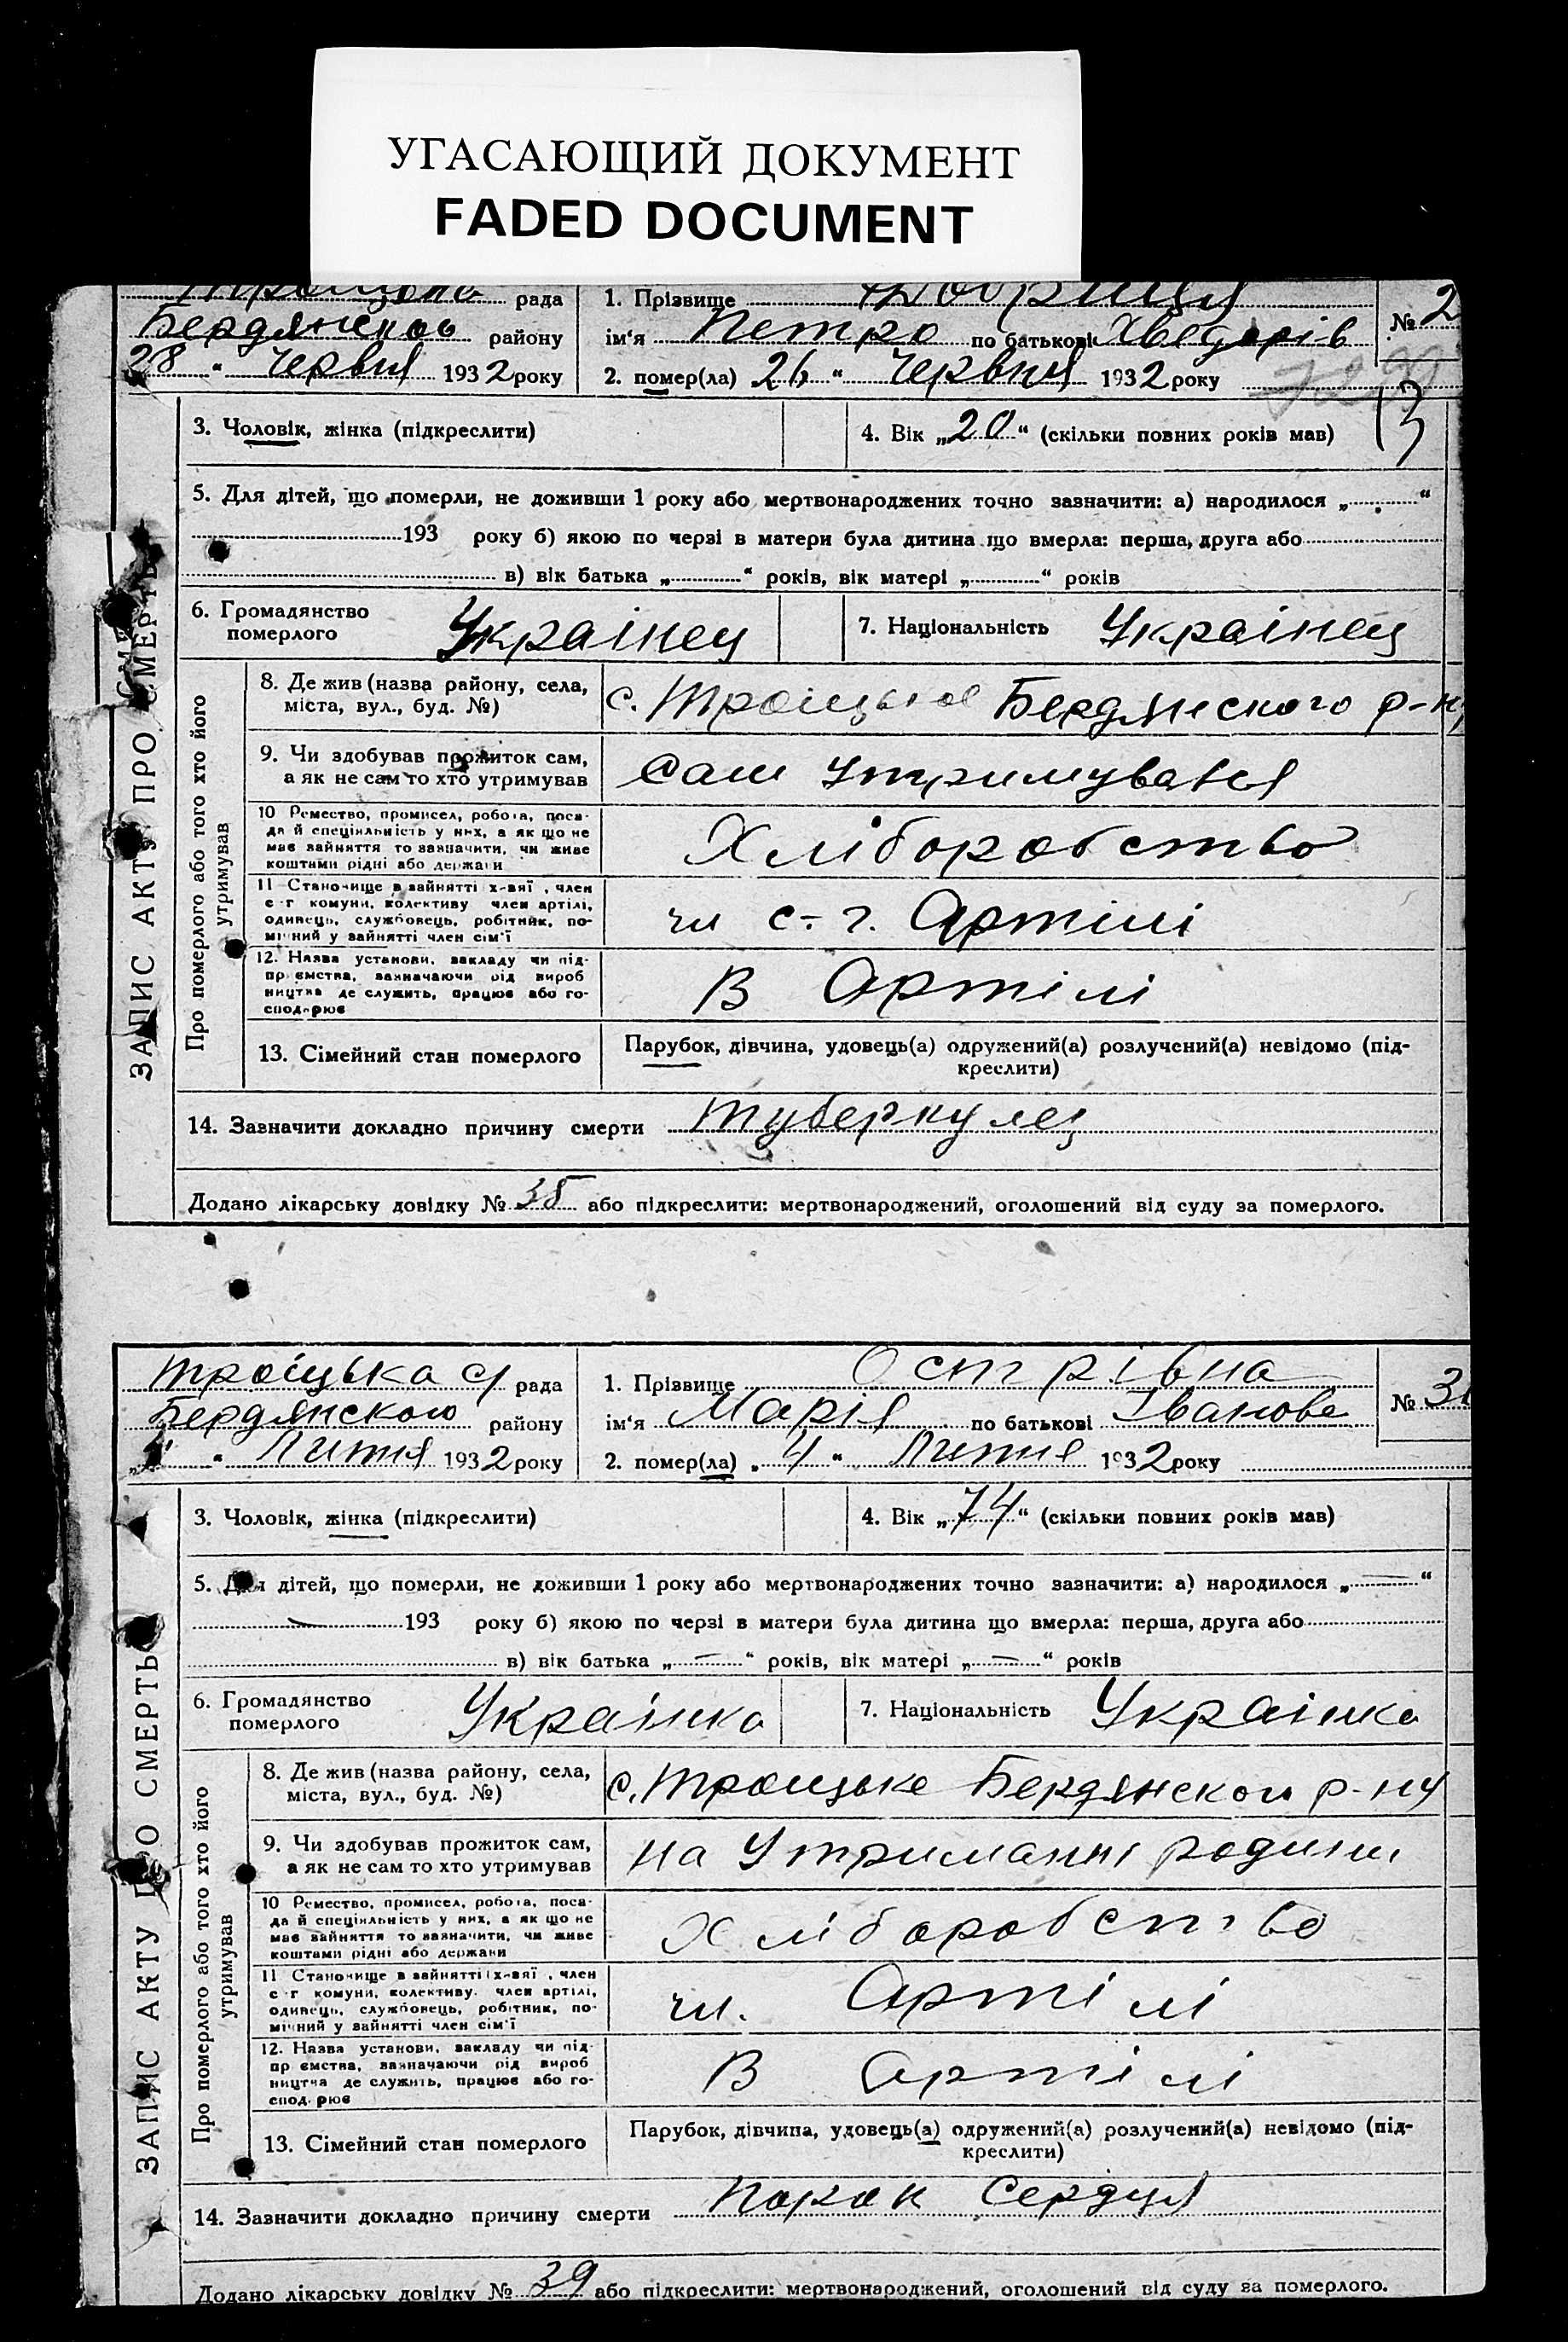 УГАСАЮЩИЙ ДОКУМЕНТ
FADED DOCUMENT
рада
Бердянського району
28 " червня 1932 року
1. Прізвище
ім'я Петро по батькові Хведорів
2. помер(ла) 26 " червня 1932 року
№ 2
13
3. Чоловік, жінка (підкреслити)
4. Вік „20" (скільки повних років мав)
5. Для дітей, що померли, не доживши 1 року або мертвонароджених точно зазначити: а) народилося „ "
193 року б) якою по черзі в матери була дитина що вмерла: перша, друга або
в) вік батька „ " років, вік матері „ " років
6. Громадянство
померлого
Українец
7. Національність Українец
8. Де жив (назва району, села,
міста, вул., буд. №)
с. Троицькое Бердянского р-ну
9. Чи здобував прожиток сам,
а як не сам то хто утримував
Сам утримувався
10 Ремество, промисел, робота, поса-
да й спеціяльність у них, а як що не
має зайняття то зазначити, чи живе
коштами рідні або держави
Хліборобство
11 Становище в зайнятті х-вяї, член
с-г комуни, колективу член артілі,
одинець, службовець, робітник, по-
мічний у зайнятті член сім'ї
чл с.-г. Артілі
12. Назва установи, закладу чи під-
приємства, зазначаючи рід вироб
ництва де служить, працює або го-
сподарює
В Артілі
13. Сімейний стан померлого
Парубок, дівчина, удовець(а) одружений(а) розлучений(а) невідомо (під-
креслити)
14. Зазначити докладно причину смерти туберкулез
Додано лікарську довідку № 38 або підкреслити: мертвонароджений, оголошений від суду за померлого.
ЗАПИС АКТУ ПРО СМЕРТЬ
Про померлого або того хто його
утримував
Троїцька с/ рада
Бердянського району
" Липня 1932 року
1. Прізвище Острівна
ім'я Марія по батькові Іванова
2. помер(ла) „ 4 " Липня 1932 року
№ 3
3. Чоловік, жінка (підкреслити)
4. Вік „74" (скільки повних років мав)
5. Для дітей, що померли, не доживши 1 року або мертвонароджених точно зазначити: а) народилося „ — "
— 193 року б) якою по черзі в матери була дитина що вмерла: перша, друга або
в) вік батька „ — " років, вік матері „ — " років
6. Громадянство
померлого
Українка
7. Національність Українка
8. Де жив (назва району, села,
міста, вул., буд. №)
с. Троицьке Бердянського р-ну
9. Чи здобував прожиток сам,
а як не сам то хто утримував
на утриманні родини
10 Ремество, промисел, робота, поса-
да й спеціяльність у них, а як що не
має зайняття то зазначити, чи живе
коштами рідні або держави
Хліборобство
11 Становище в зайнятті (х-вяї, член
с-г комуни, колективу. член артілі,
одинець, службовець, робітник, по-
мічний у зайнятті член сім'ї
чл. Артілі
12. Назва установи, закладу чи під-
приємства, зазначаючи рід вироб
ництва де служить, працює або го-
сподарює
В Артілі
13. Сімейний стан померлого
Парубок, дівчина, удовець(а) одружений(а) розлучений(а) невідомо (під-
креслити)
14. Зазначити докладно причину смерти Порок Сердця
Додано лікарську довідку № 39 або підкреслити: мертвонароджений, оголошений від суду за померлого.
ЗАПИС АКТУ ПРО СМЕРТЬ
Про померлого або того хто його
утримував